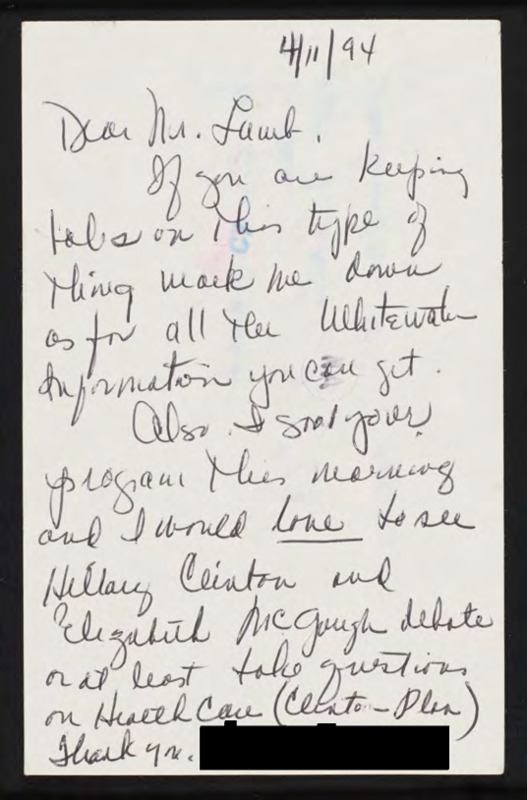 4/11/94
Dear Mr. Lamb,
If you are keeping
tabs on this type of
thing mark me down
as for all the Whitewater
Information you can get.
Also I saw your
program this morning
and I would love to see
Hillary Clinton and
Elizabeth McGough debate
or at least take questions
on Health Care (Clinton-Plan)
Thank you.